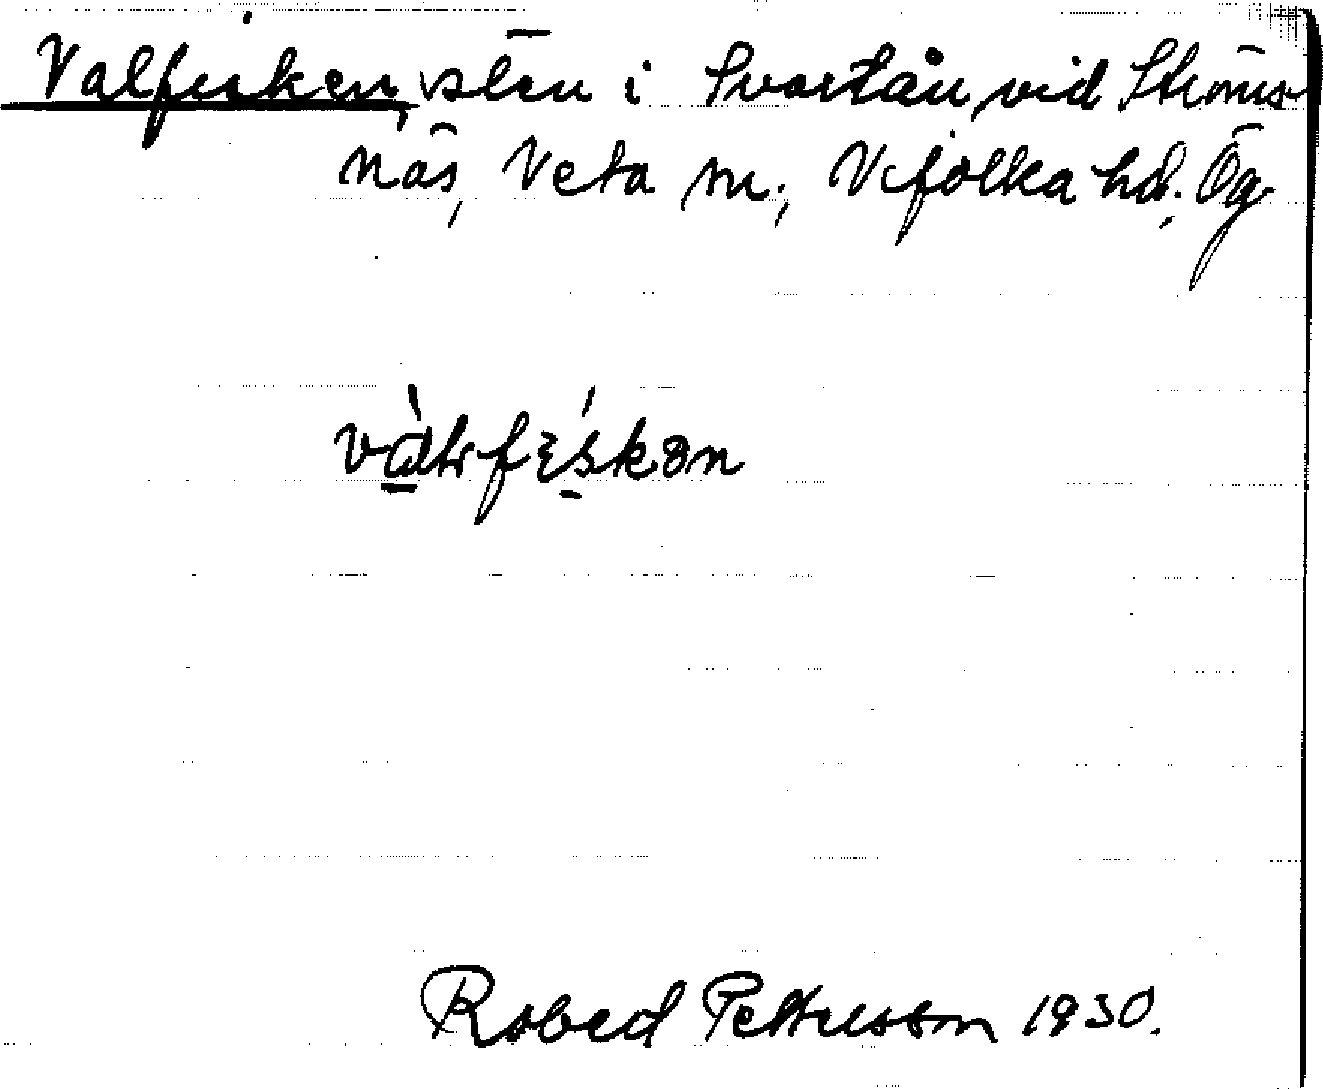 Valfisken, sten i Svartån, vid Ströms-
näs, Veta sn., Vifolka hd. Ög.
Robert Pettersson 1930.